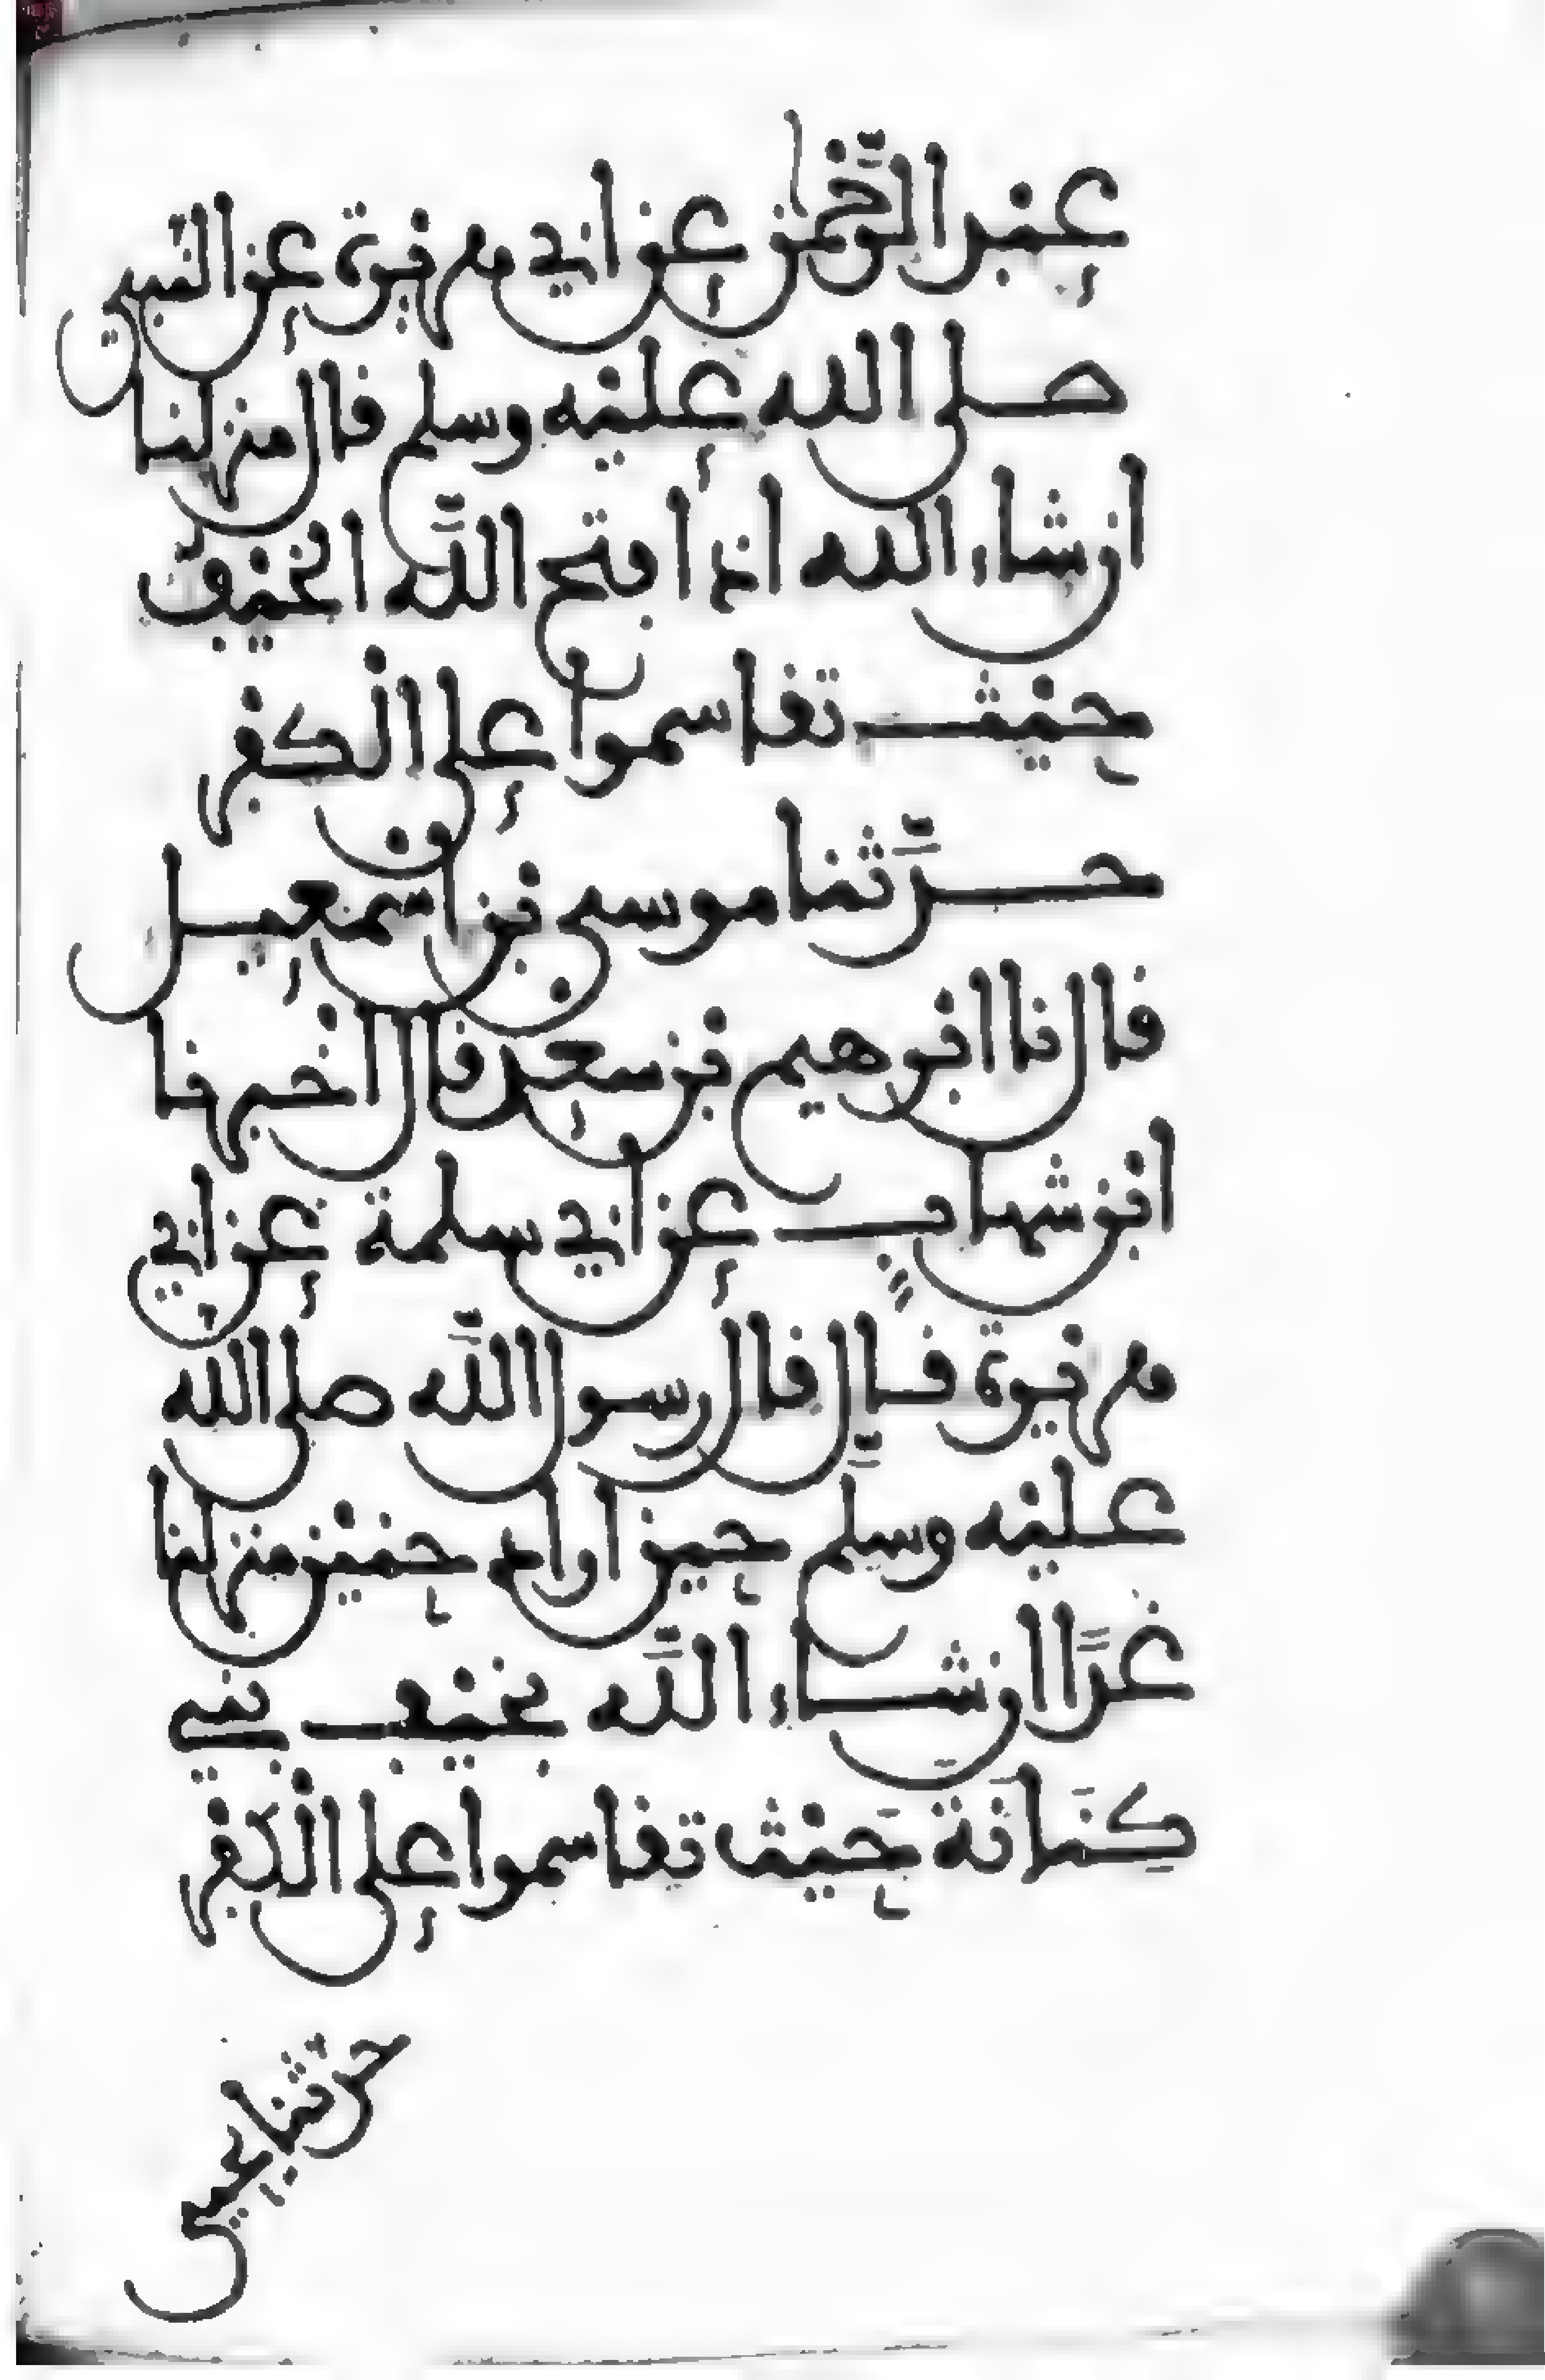 عبد الرَّحمن عن ابي هريرة عن النبي
صلى الله عليه وسلم قال منزلنا
ان شاء الله اذا فتح اللَّه الخيفُ
حيث تقاسموا على الكفر
حدَّثنا موسى بن اسمعيل
قال نا ابرهيم بن سعد قال اخبرنا
ابن شهابٍ عن ابي سلمة عن ابي
هريرة قال قال رسول اللَّه صلى الله
عليه وسلَّم حين اراد حنين منزلنا
غدًا ان شاء اللَّه بخيف بني
كِنَانَة حَيْث تقاسموا على الكفر
حدثنا يحيى